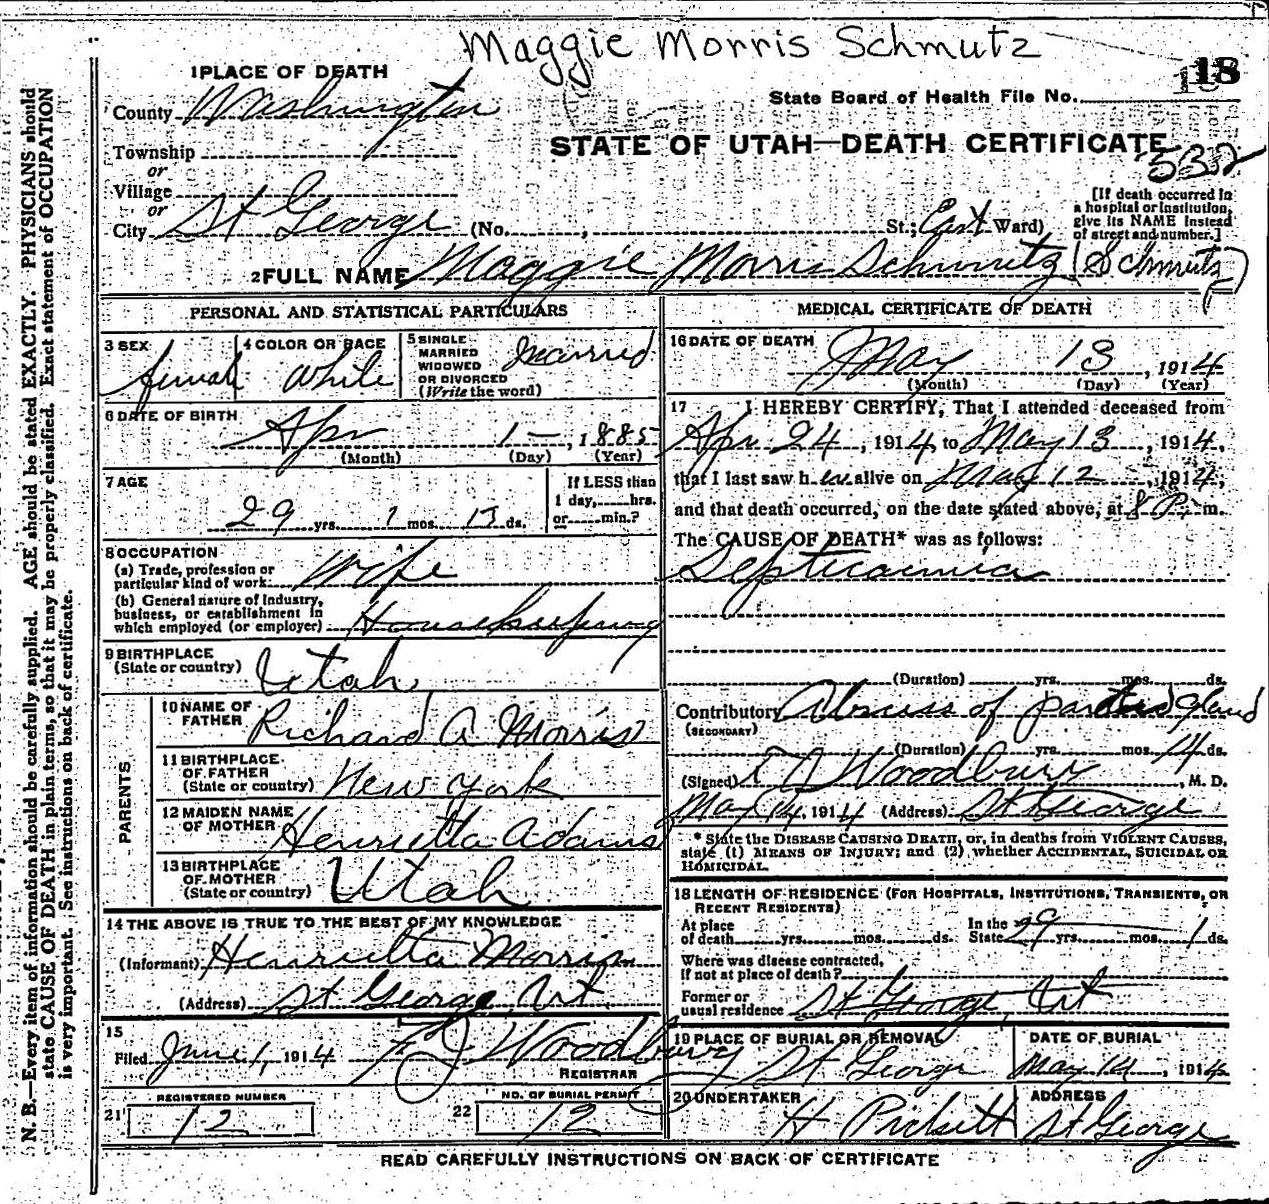 Maggie Morris Schmutz
18
1 PLACE OF DEATH
County Washington
State Board of Health File No.
Township
or
STATE OF UTAH—DEATH CERTIFICATE
532
Village
or
City St George (No. , St.; East Ward)
[If death occurred in
a hospital or institution,
give its NAME instead
of street and number.]
2 FULL NAME Maggie Morris Schmutz (Schmutz)
PERSONAL AND STATISTICAL PARTICULARS
3 SEX
female
4 COLOR OR RACE
White
5 SINGLE
MARRIED
WIDOWED
OR DIVORCED
(Write the word)
Married
6 DATE OF BIRTH
Apr 1 —, 1885
(Month) (Day) (Year)
7 AGE
29 yrs. 1 mos. 13 ds.
If LESS than
1 day, hrs.
or min.?
8 OCCUPATION
(a) Trade, profession or
particular kind of work Wife
(b) General nature of industry,
business, or establishment in
which employed (or employer) Housekeeping
9 BIRTHPLACE
(State or country) Utah
PARENTS
10 NAME OF
FATHER Richard A Morris
11 BIRTHPLACE
OF FATHER
(State or country) New york
12 MAIDEN NAME
OF MOTHER Henrietta Adams
13 BIRTHPLACE
OF MOTHER
(State or country) Utah
14 THE ABOVE IS TRUE TO THE BEST OF MY KNOWLEDGE
(Informant) Henrietta Morris
(Address) St George, Ut
15
Filed June 1, 1914 F J Woodbury
REGISTRAR
REGISTERED NUMBER
21 12
NO. OF BURIAL PERMIT
22 12
MEDICAL CERTIFICATE OF DEATH
16 DATE OF DEATH
May 13, 1914
(Month) (Day) (Year)
17 I HEREBY CERTIFY, That I attended deceased from
Apr 24, 1914, to May 13, 1914,
that I last saw h er alive on May 12, 1914,
and that death occurred, on the date stated above, at 8 P. m.
The CAUSE OF DEATH* was as follows:
Septicaemia
(Duration) yrs. mos. ds.
Contributory Abscess of parotid gland
(SECONDARY)
(Duration) yrs. mos. 14 ds.
(Signed) Woodbury, M. D.
May 14, 1914 (Address) St George
* State the DISEASE CAUSING DEATH, or, in deaths from VIOLENT CAUSES,
state (1) MEANS OF INJURY; and (2) whether ACCIDENTAL, SUICIDAL OR
HOMICIDAL.
18 LENGTH OF RESIDENCE (FOR HOSPITALS, INSTITUTIONS, TRANSIENTS, OR
RECENT RESIDENTS)
At place
of death yrs. mos. ds.
In the
State 29 yrs. mos. 1 ds.
Where was disease contracted,
if not at place of death?
Former or
usual residence St George, Ut
19 PLACE OF BURIAL OR REMOVAL
St George
DATE OF BURIAL
May 14, 1914
20 UNDERTAKER
H Pickett
ADDRESS
St George
READ CAREFULLY INSTRUCTIONS ON BACK OF CERTIFICATE
N. B.—Every item of information should be carefully supplied. AGE should be stated EXACTLY. PHYSICIANS should
state CAUSE OF DEATH in plain terms, so that it may be properly classified. Exact statement of OCCUPATION
is very important. See instructions on back of certificate.